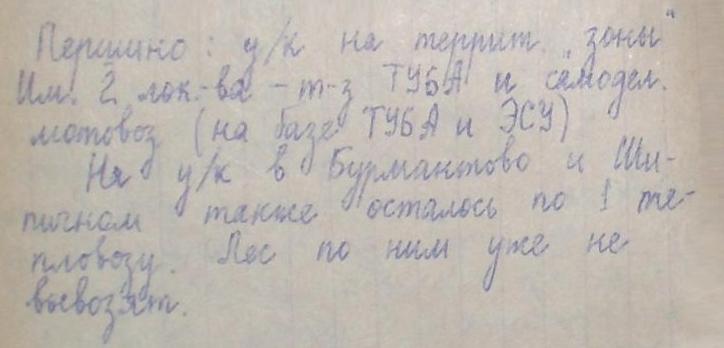 Першино: у/к на террит. "зоны"
Им. 2 лок.-ва - т-з ТУ6А и самодел.
мотовоз (на базе ТУ6А и ЭСУ)
На у/к в Бурмантово и Ши-
пичном также осталось по 1 те-
пловозу. Лес по ним уже не
вывозят.